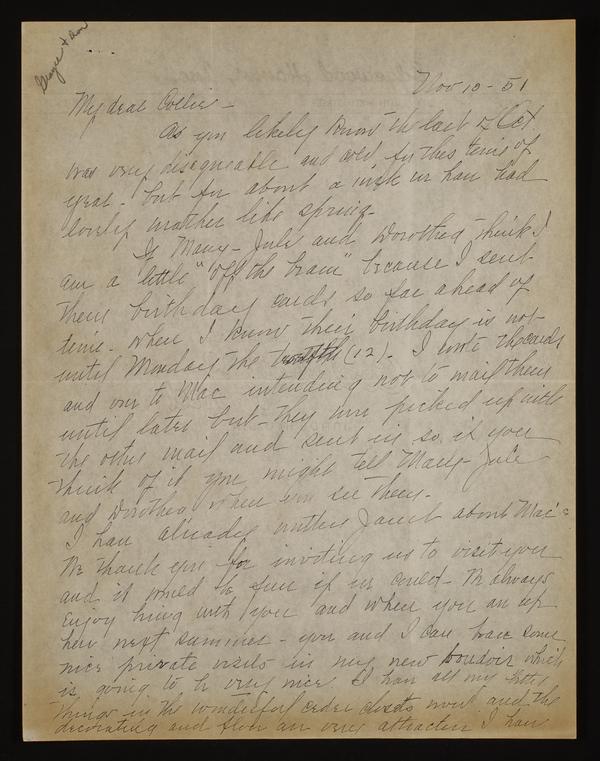 Nov 10 - 51
My dear Collie -
As you likely know the last of Oct
was very disagreeable and cold for this time of
year - but for about a week we have had
lovely weather like spring -
If Mary - Julie and Dorothea think I
am a little "off the beam" because I sent
them birthday cards so far ahead of
time - when I know their birthday is not
until Monday the twelfth (12) - I wrote the cards
and one to Mac intending not to mail them
until later but - they were picked up with
the other mail and sent in so if you
think of it you might tell Mary - Julie
and Dorothea when you see them -
I have already written Janet about Mac's
We thank you for inviting us to visit you
and it would be fun if we could - We always
enjoy being with you and when you are up
here next summer - you and I can have some
nice private visits in my new boudoir which
is going to be very nice I have all my
things in the wonderful cedar closets now and the
decorating and floor are very attractive I have